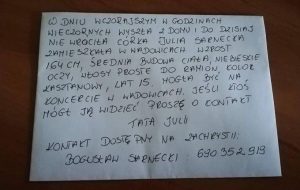 W DNIU WCZORAJSZYM W GODZINACH
WIECZORNYCH WYSZŁA Z DOMU I DO DZISIAJ
NIE WRÓCIŁA CÓRKA JULIA SARNECKA
ZAMIESZKAŁA W WADOWICACH WZROST
164 CM, ŚREDNIA BUDOWA CIAŁA, NIEBIESKIE
OCZY, WŁOSY PROSTE DO RAMION, KOLOR
KASZTANOWY, LAT 15. MOGŁA BYĆ NA
KONCERCIE W WADOWICACH. JEŚLI KTOŚ
MÓGŁ JĄ WIDZIEĆ PROSZĘ O KONTAKT
TATA JULII
KONTAKT DOSTĘPNY NA ZACHRYSTII.
BOGUSŁAW SARNECKI 690 352 919